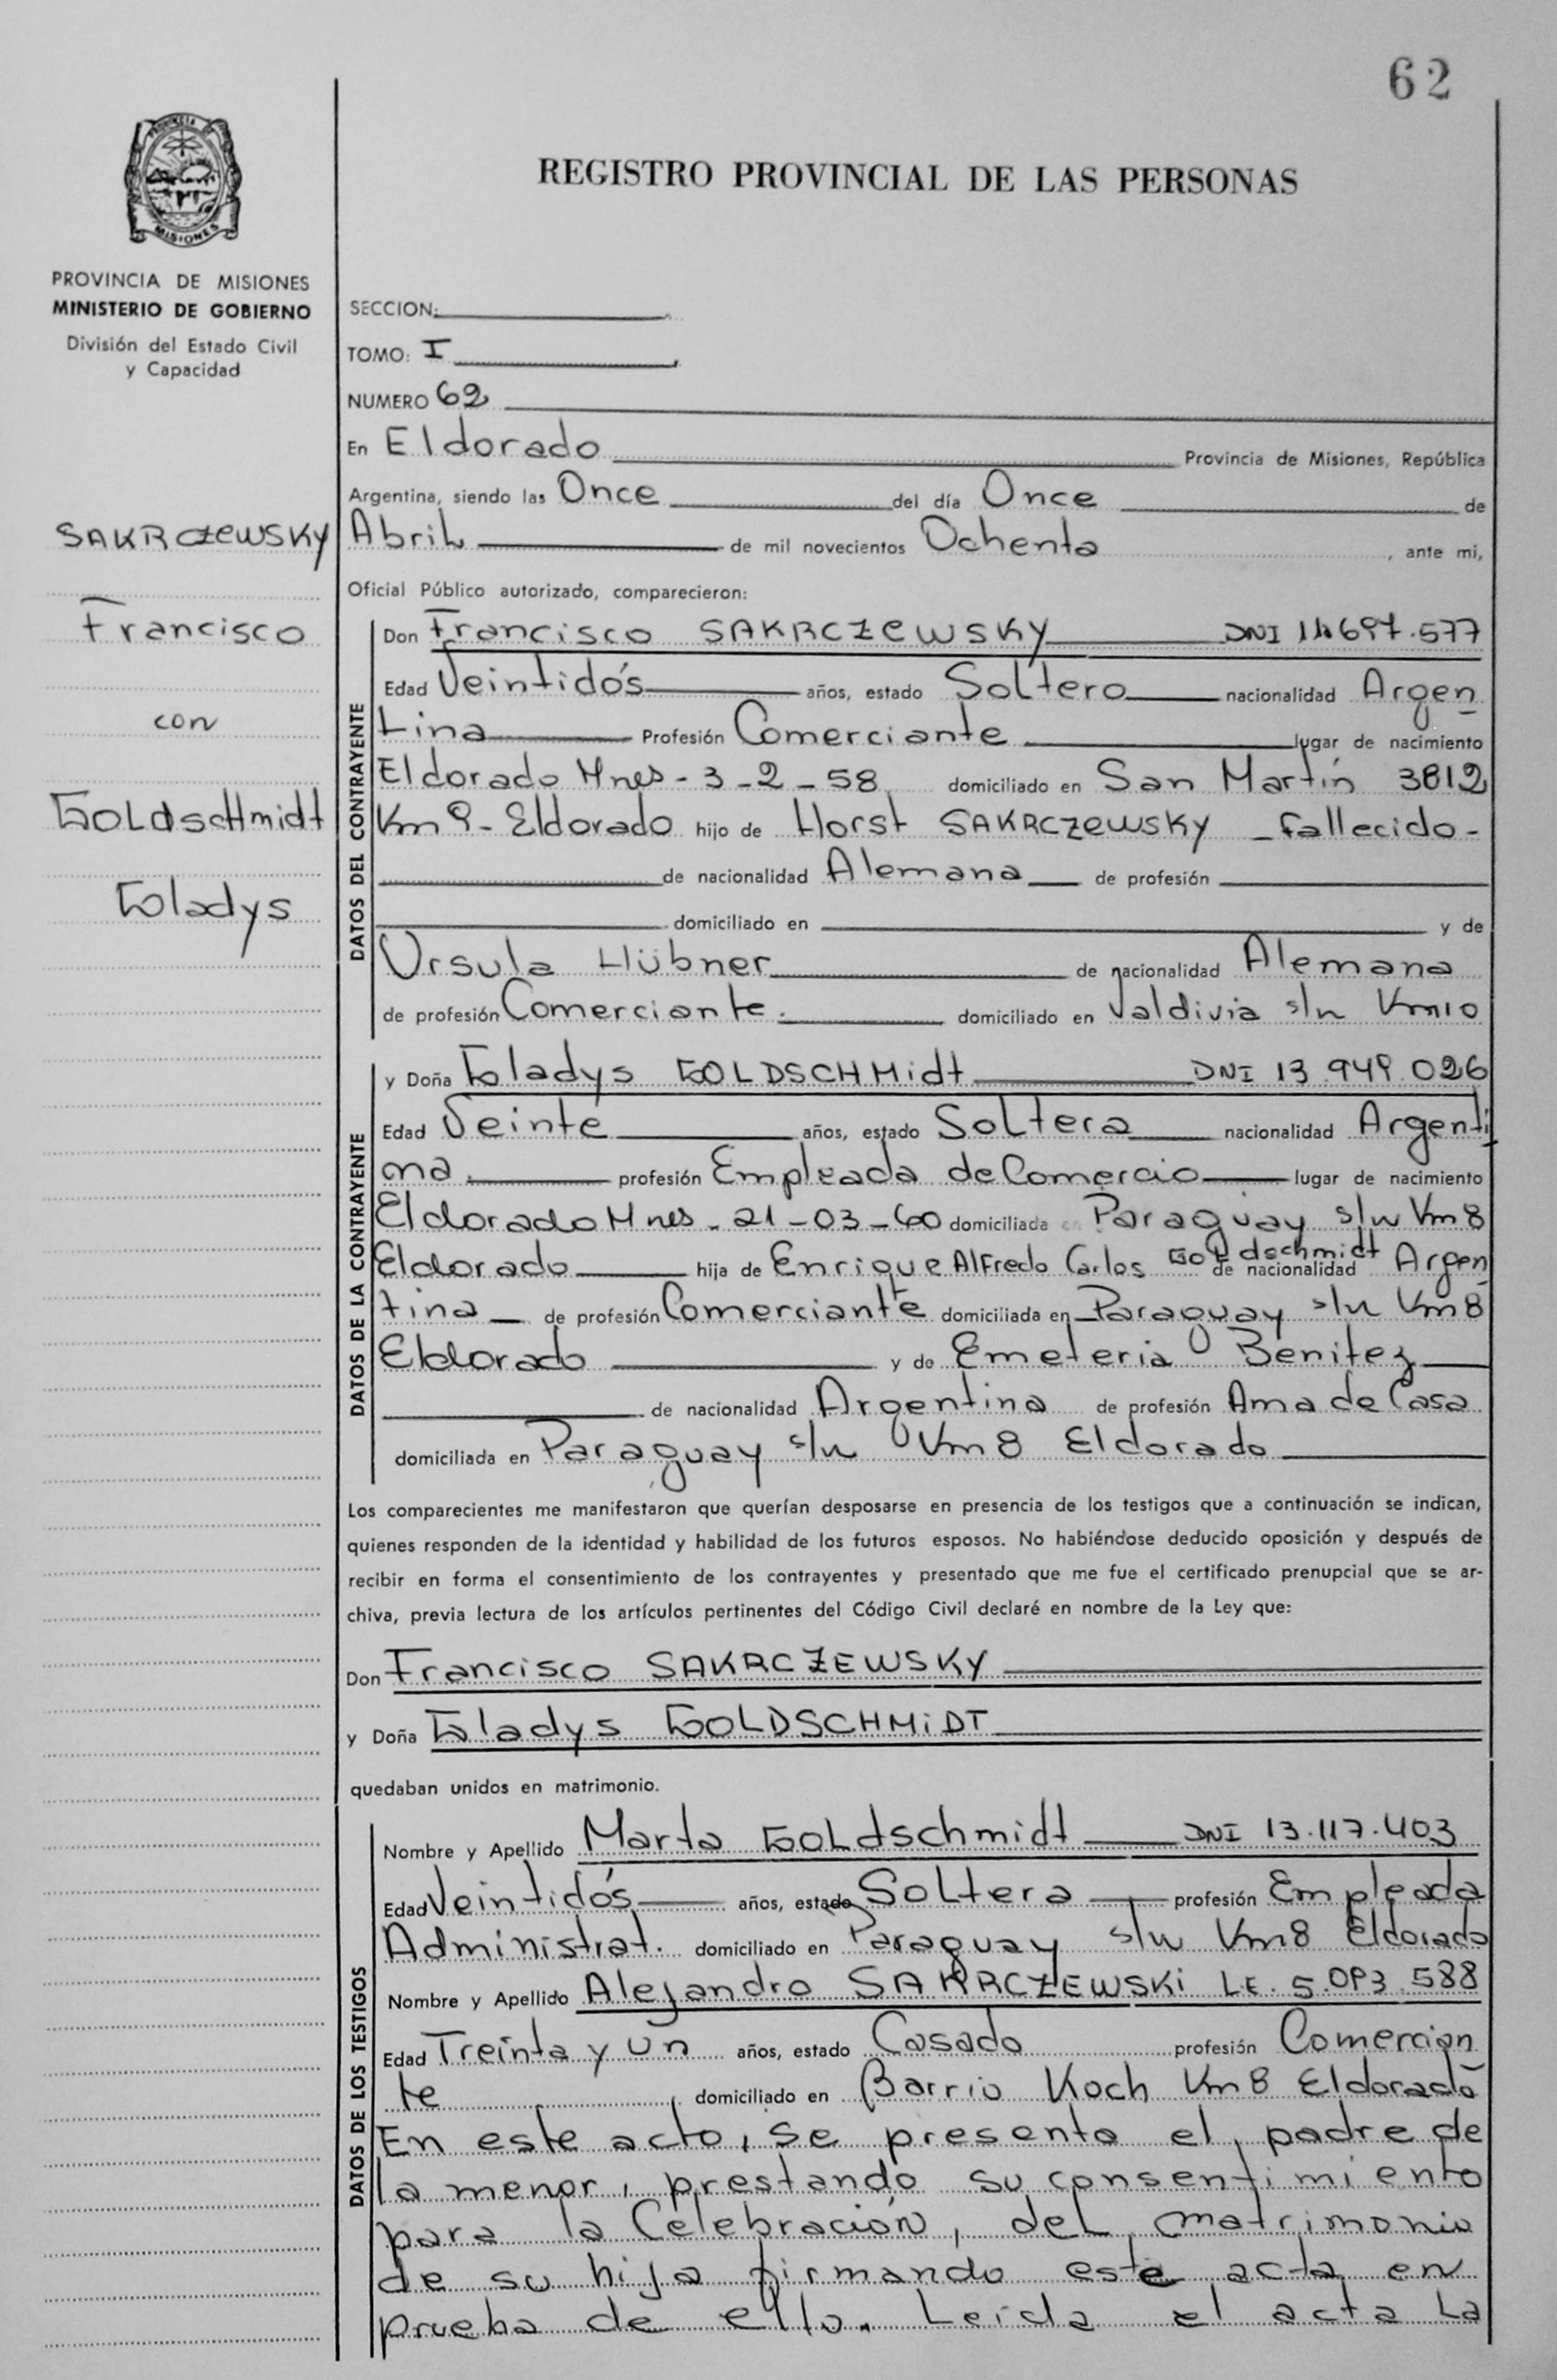 62
REGISTRO PROVINCIAL DE LAS PERSONAS
PROVINCIA DE MISIONES
MINISTERIO DE GOBIERNO
División del Estado Civil
y Capacidad
SAKRCZEWSKY
Francisco
con
GOLdscHmidt
Gladys
SECCION:
TOMO: I
NUMERO 62
En Eldorado Provincia de Misiones, República
Argentina, siendo las Once del día Once de
Abril de mil novecientos Ochenta, ante mi,
Oficial Público autorizado, comparecieron:
DATOS DEL CONTRAYENTE
Don Francisco SAKRCZEWSKY DNI
Edad Veintidós años, estado Soltero nacionalidad Argen
tina Profesión Comerciante lugar de nacimiento
Eldorado Mnes - 3-2-58 domiciliado en San Martín 3812
Km 9 - Eldorado hijo de Horst SAKRCZEWSKY - fallecido -
de nacionalidad Alemana de profesión
domiciliado en y de
Ursula Hübner de nacionalidad Alemana
de profesión Comerciante. domiciliado en Valdivia s/n Km10
DATOS DE LA CONTRAYENTE
y Doña Gladys GOLDSCHMidt DNI 13.949.026
Edad Veinte años, estado Soltera nacionalidad Argenti
na. profesión Empleada de Comercio lugar de nacimiento
Eldorado Mnes - 21-03-60 domiciliada en Paraguay s/n Km 8
Eldorado hija de Enrique Alfredo Carlos Goldschmidt de nacionalidad Argen
tina de profesión Comerciante domiciliada en Paraguay s/n Km 8
Eldorado y de Emeteria Benitez
de nacionalidad Argentina de profesión Ama de Casa
domiciliada en Paraguay s/n Km 8 Eldorado
Los comparecientes me manifestaron que querían desposarse en presencia de los testigos que a continuación se indican,
quienes responden de la identidad y habilidad de los futuros esposos. No habiéndose deducido oposición y después de
recibir en forma el consentimiento de los contrayentes y presentado que me fue el certificado prenupcial que se ar-
chiva, previa lectura de los artículos pertinentes del Código Civil declaré en nombre de la Ley que:
Don Francisco SAKRCZEWSKY
y Doña Gladys GOLDSCHMiDT
quedaban unidos en matrimonio.
DATOS DE LOS TESTIGOS
Nombre y Apellido Marta GOLdschmidt DNI 13.117.403
Edad Veintidós años, estado Soltera profesión Empleada
Administrat. domiciliado en Paraguay s/n Km8 Eldorado
Nombre y Apellido Alejandro SAKRCZEWSKi L.E. 5.093.588
Edad Treinta y Un años, estado Casado profesión Comercian
te domiciliado en Barrio Koch Km 8 Eldorado
En este acto, se presenta el padre de
la menor, prestando su consentimiento
para la Celebración, del matrimonio
de su hija firmando este acta en
prueba de ello. Leída el acta La